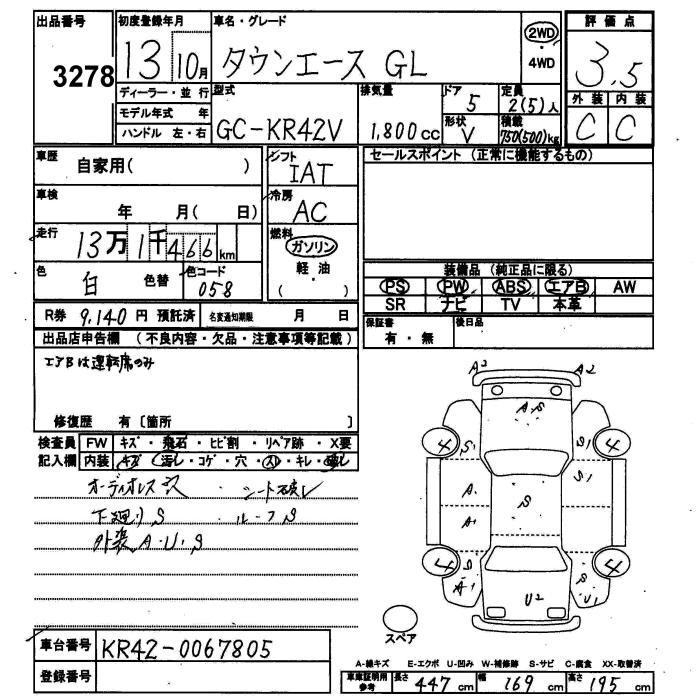 出品番号
3278
初度登録年月
13 10月
車名・グレード
タウンエース GL
2WD
・
4WD
評価点
3.5
外装 内装
C C
ディーラー・並行
モデル年式 年
ハンドル 左・右
型式
GC-KR42V
排気量
1,800cc
ドア
5
形状
V
定員
2(5)人
積載
750(500)kg
車歴
自家用( )
シフト
IAT
セールスポイント (正常に機能するもの)
車検
年 月( 日)
冷房
AC
走行
13万1千466km
燃料
ガソリン
軽油
・
( )
色
白 色替
色コード
058
装備品 (純正品に限る)
PS PW ABS エアB AW
SR ナビ TV 本革
R券 9,140円 預託済
名変通知期限 月 日
保証書
有・無
後日品
出品店申告欄 (不良内容・欠品・注意事項等記載)
エアBは運転席のみ
修復歴 有〔箇所 〕
検査員
記入欄
FW キズ・飛石・ヒビ割・リペア跡・X要
内装 キズ・汚レ・コゲ・穴・スレ・キレ・破レ
オーディオレス沢 シート破レ
下廻りS ルーフS
外装A・U・S
A2 A2
A.S
4 S1 S1 4
A1 S S1
A1
4 S A1 S U1 4
U2
スペア
車台番号 KR42-0067805
登録番号
A-線キズ E-エクボ U-凹み W-補修跡 S-サビ C-腐食 XX-取替済
車庫証明用
参考
長さ 447cm 幅 169cm 高さ 195cm